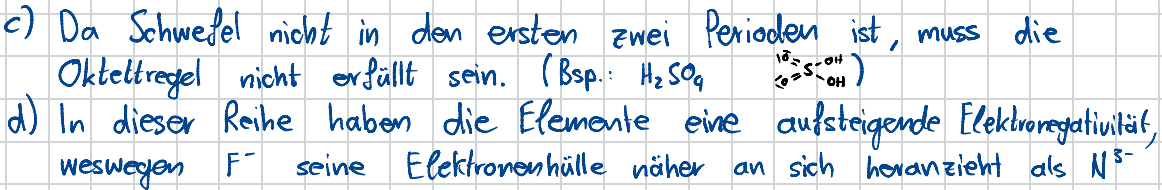 c) Da Schwefel nicht in den ersten zwei Perioden ist, muss die
Oktettregel nicht erfüllt sein. (Bsp.: H₂SO₄ O=S-OH O= OH)
d) In dieser Reihe haben die Elemente eine aufsteigende Elektronegativität,
weswegen F⁻ seine Elektronenhülle näher an sich heranzieht als N³⁻